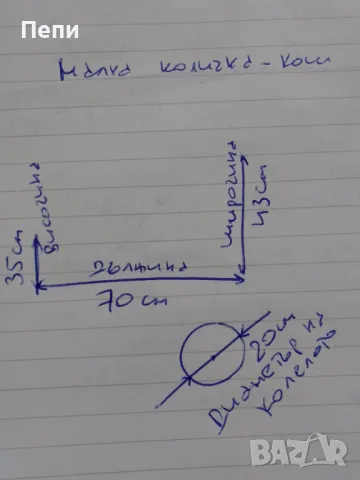 Пепи
Малка количка - кош
височина
35 cm
дължина
70 cm
широчина
43 cm
20 cm
Диаметър на
колелото
BAZAR